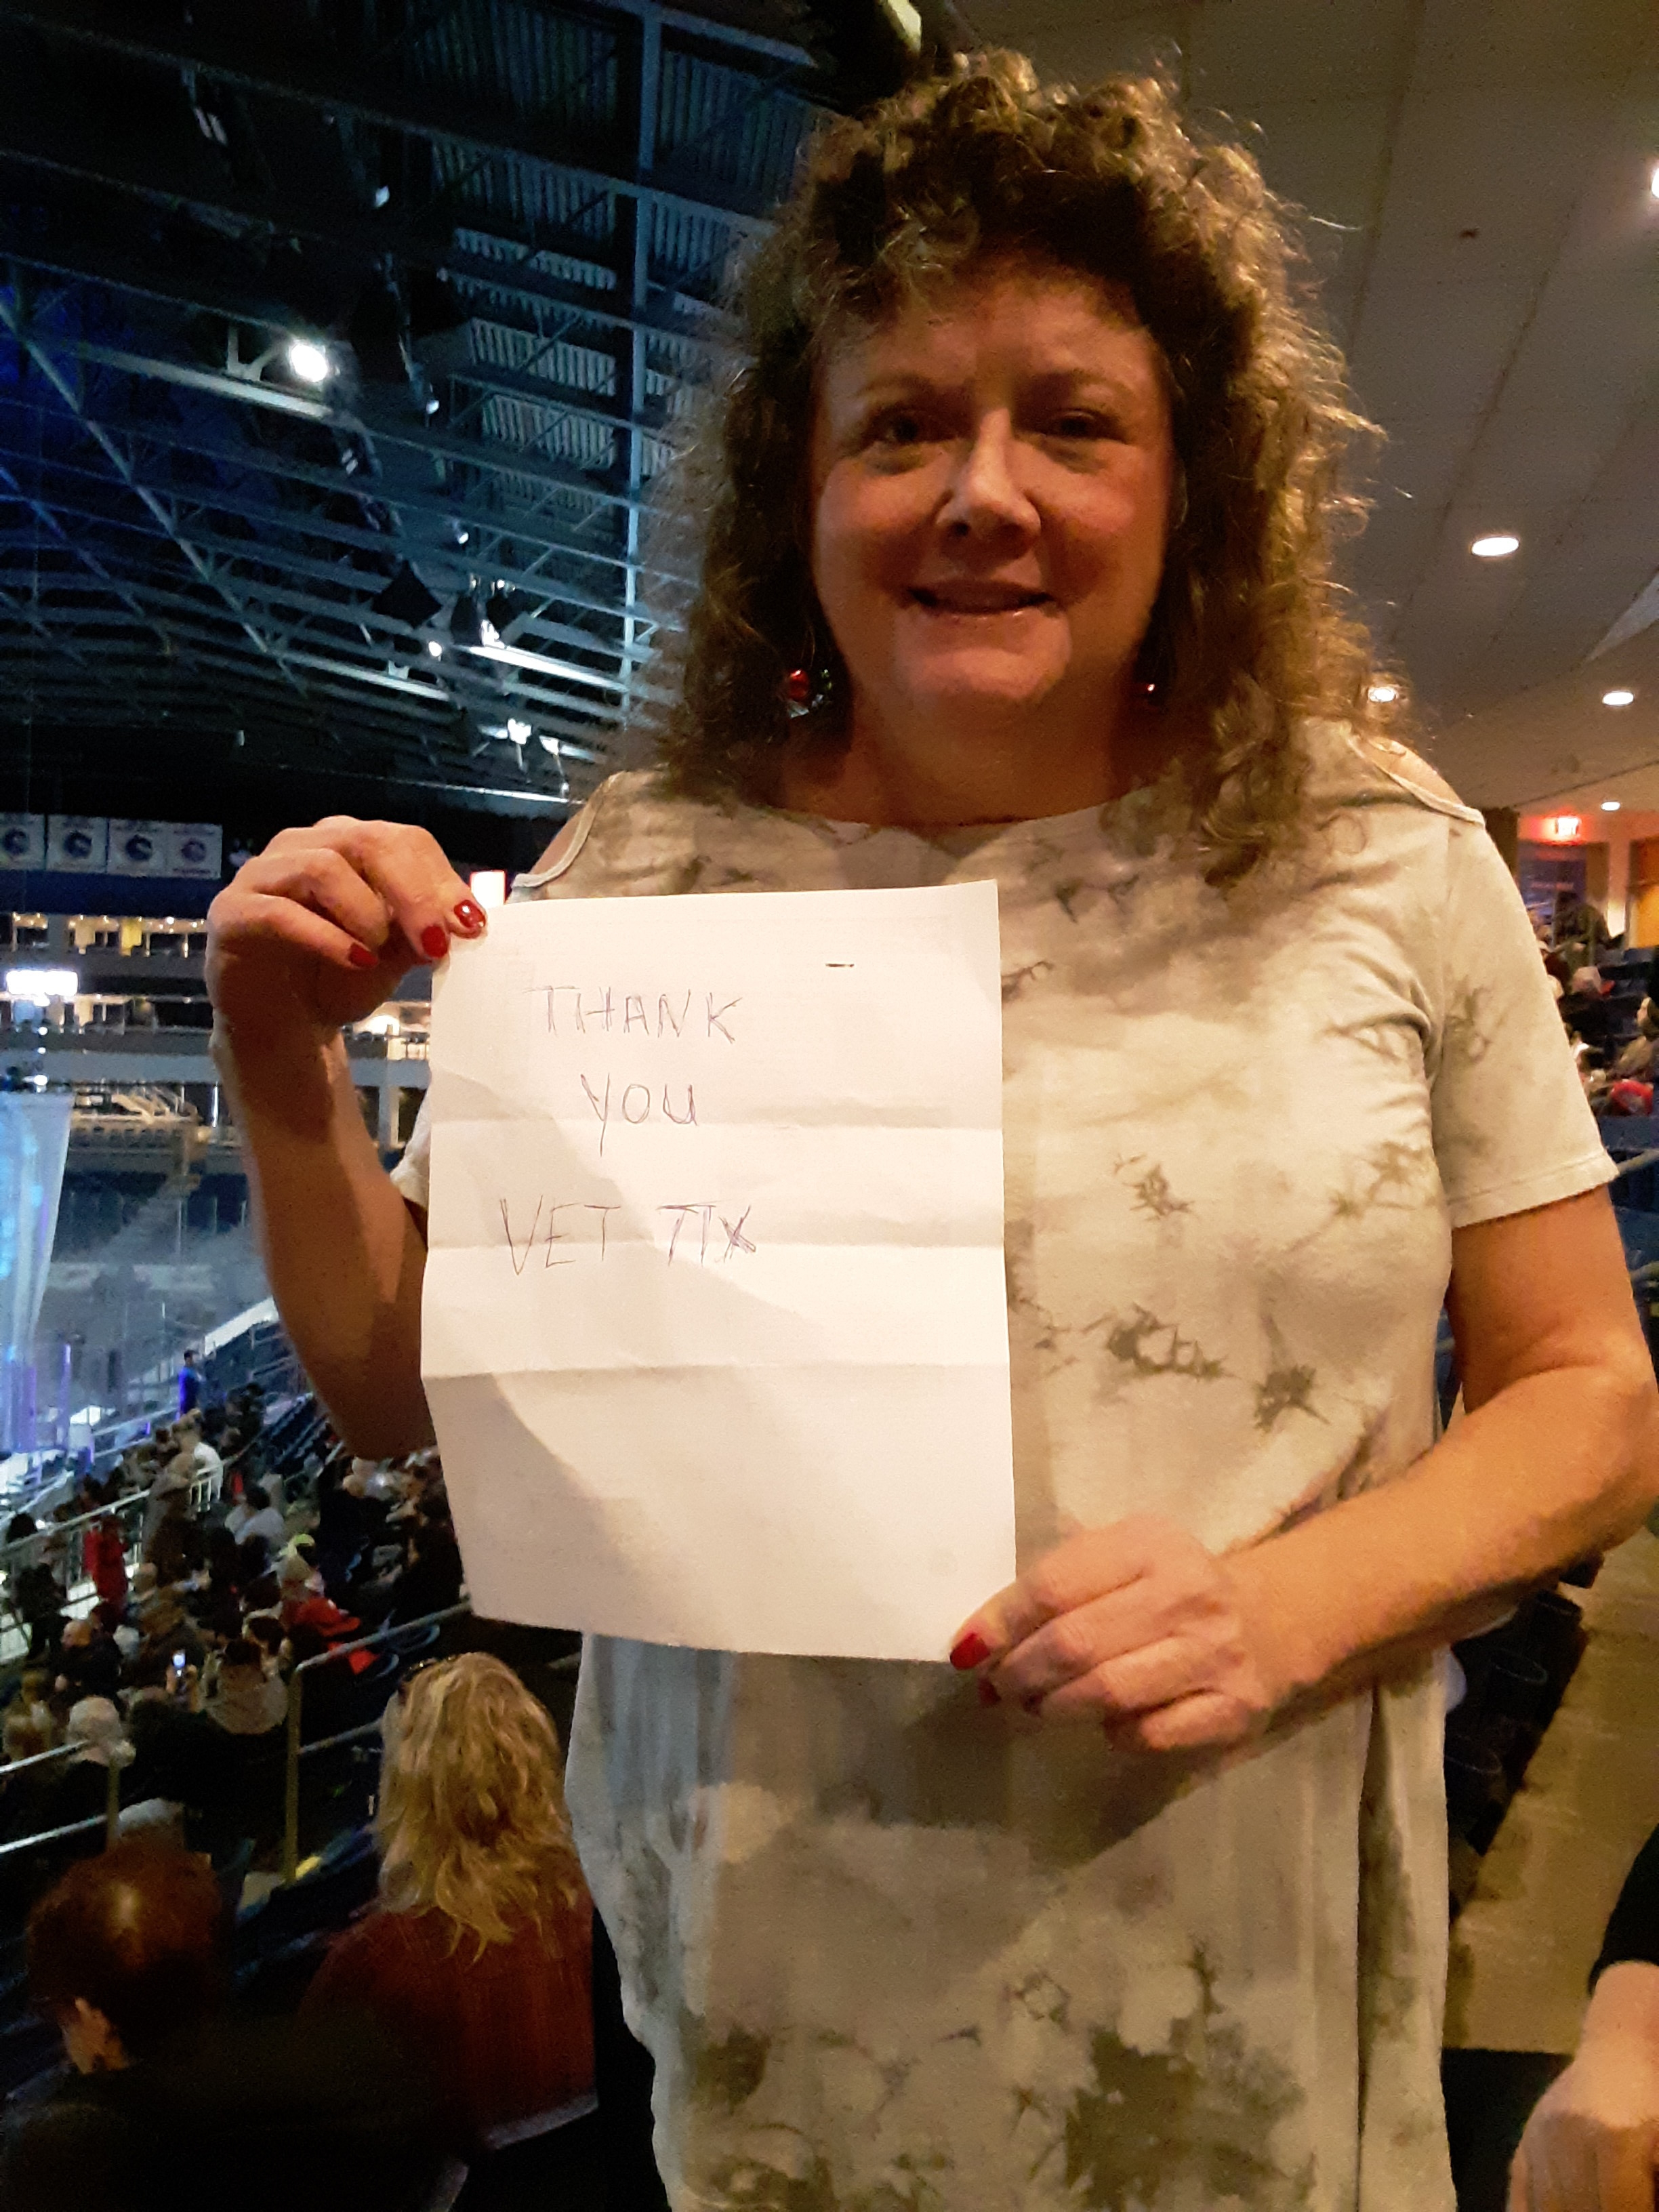 THANK
YOU
VET TIX